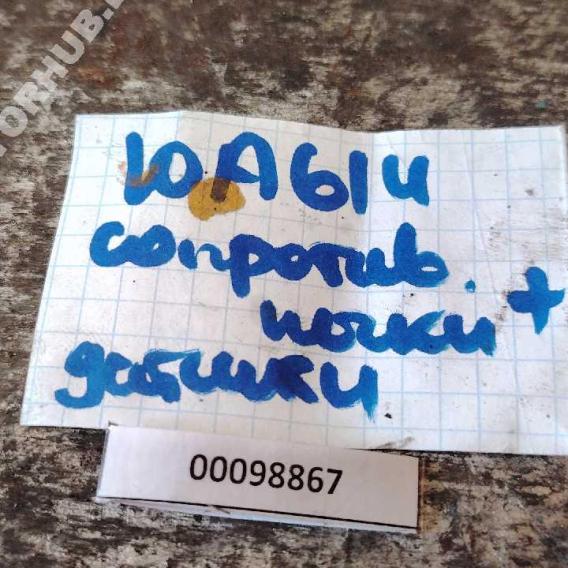 TORHUB.B
ЮА614
сопротив.
почки +
датчики
00098867